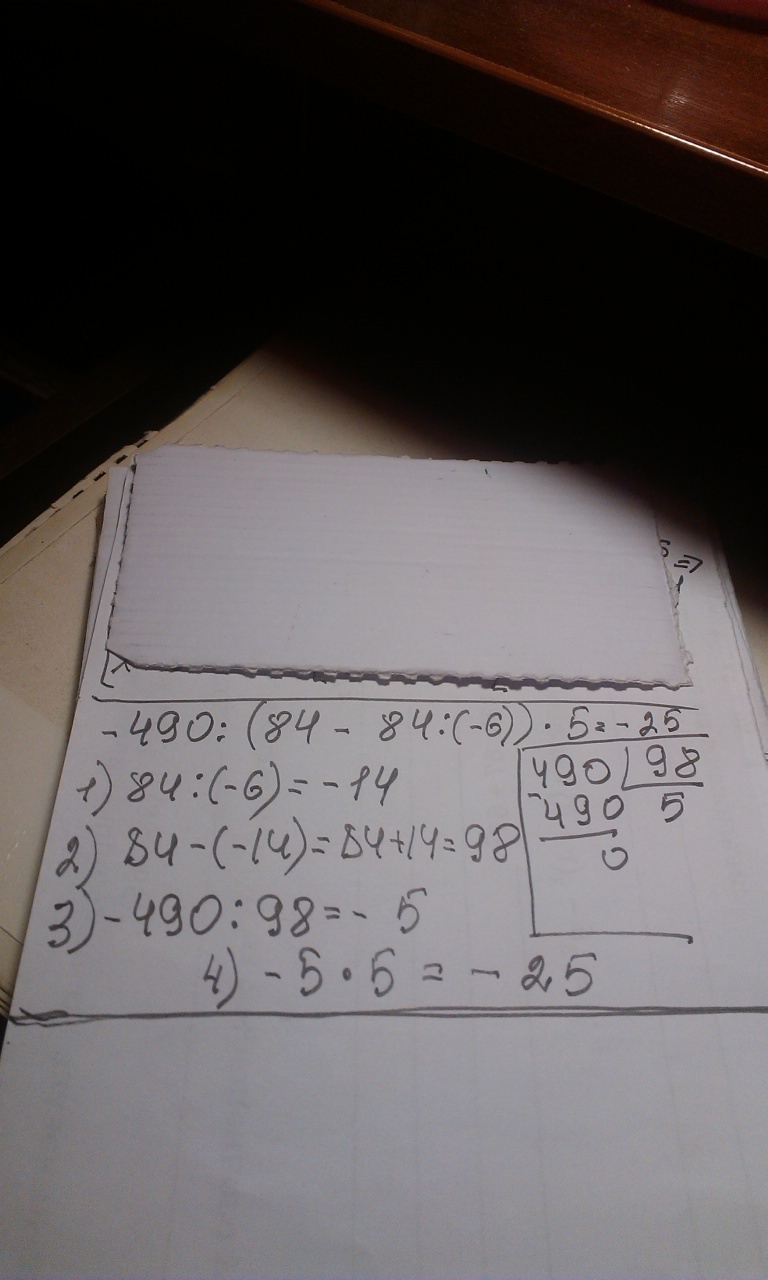 -490:(84 - 84:(-6)) · 5 = -25
1) 84:(-6) = -14
2) 84-(-14) = 84+14 = 98
3) -490:98 = - 5
4) - 5 · 5 = - 25
490 98
- 490 5
0